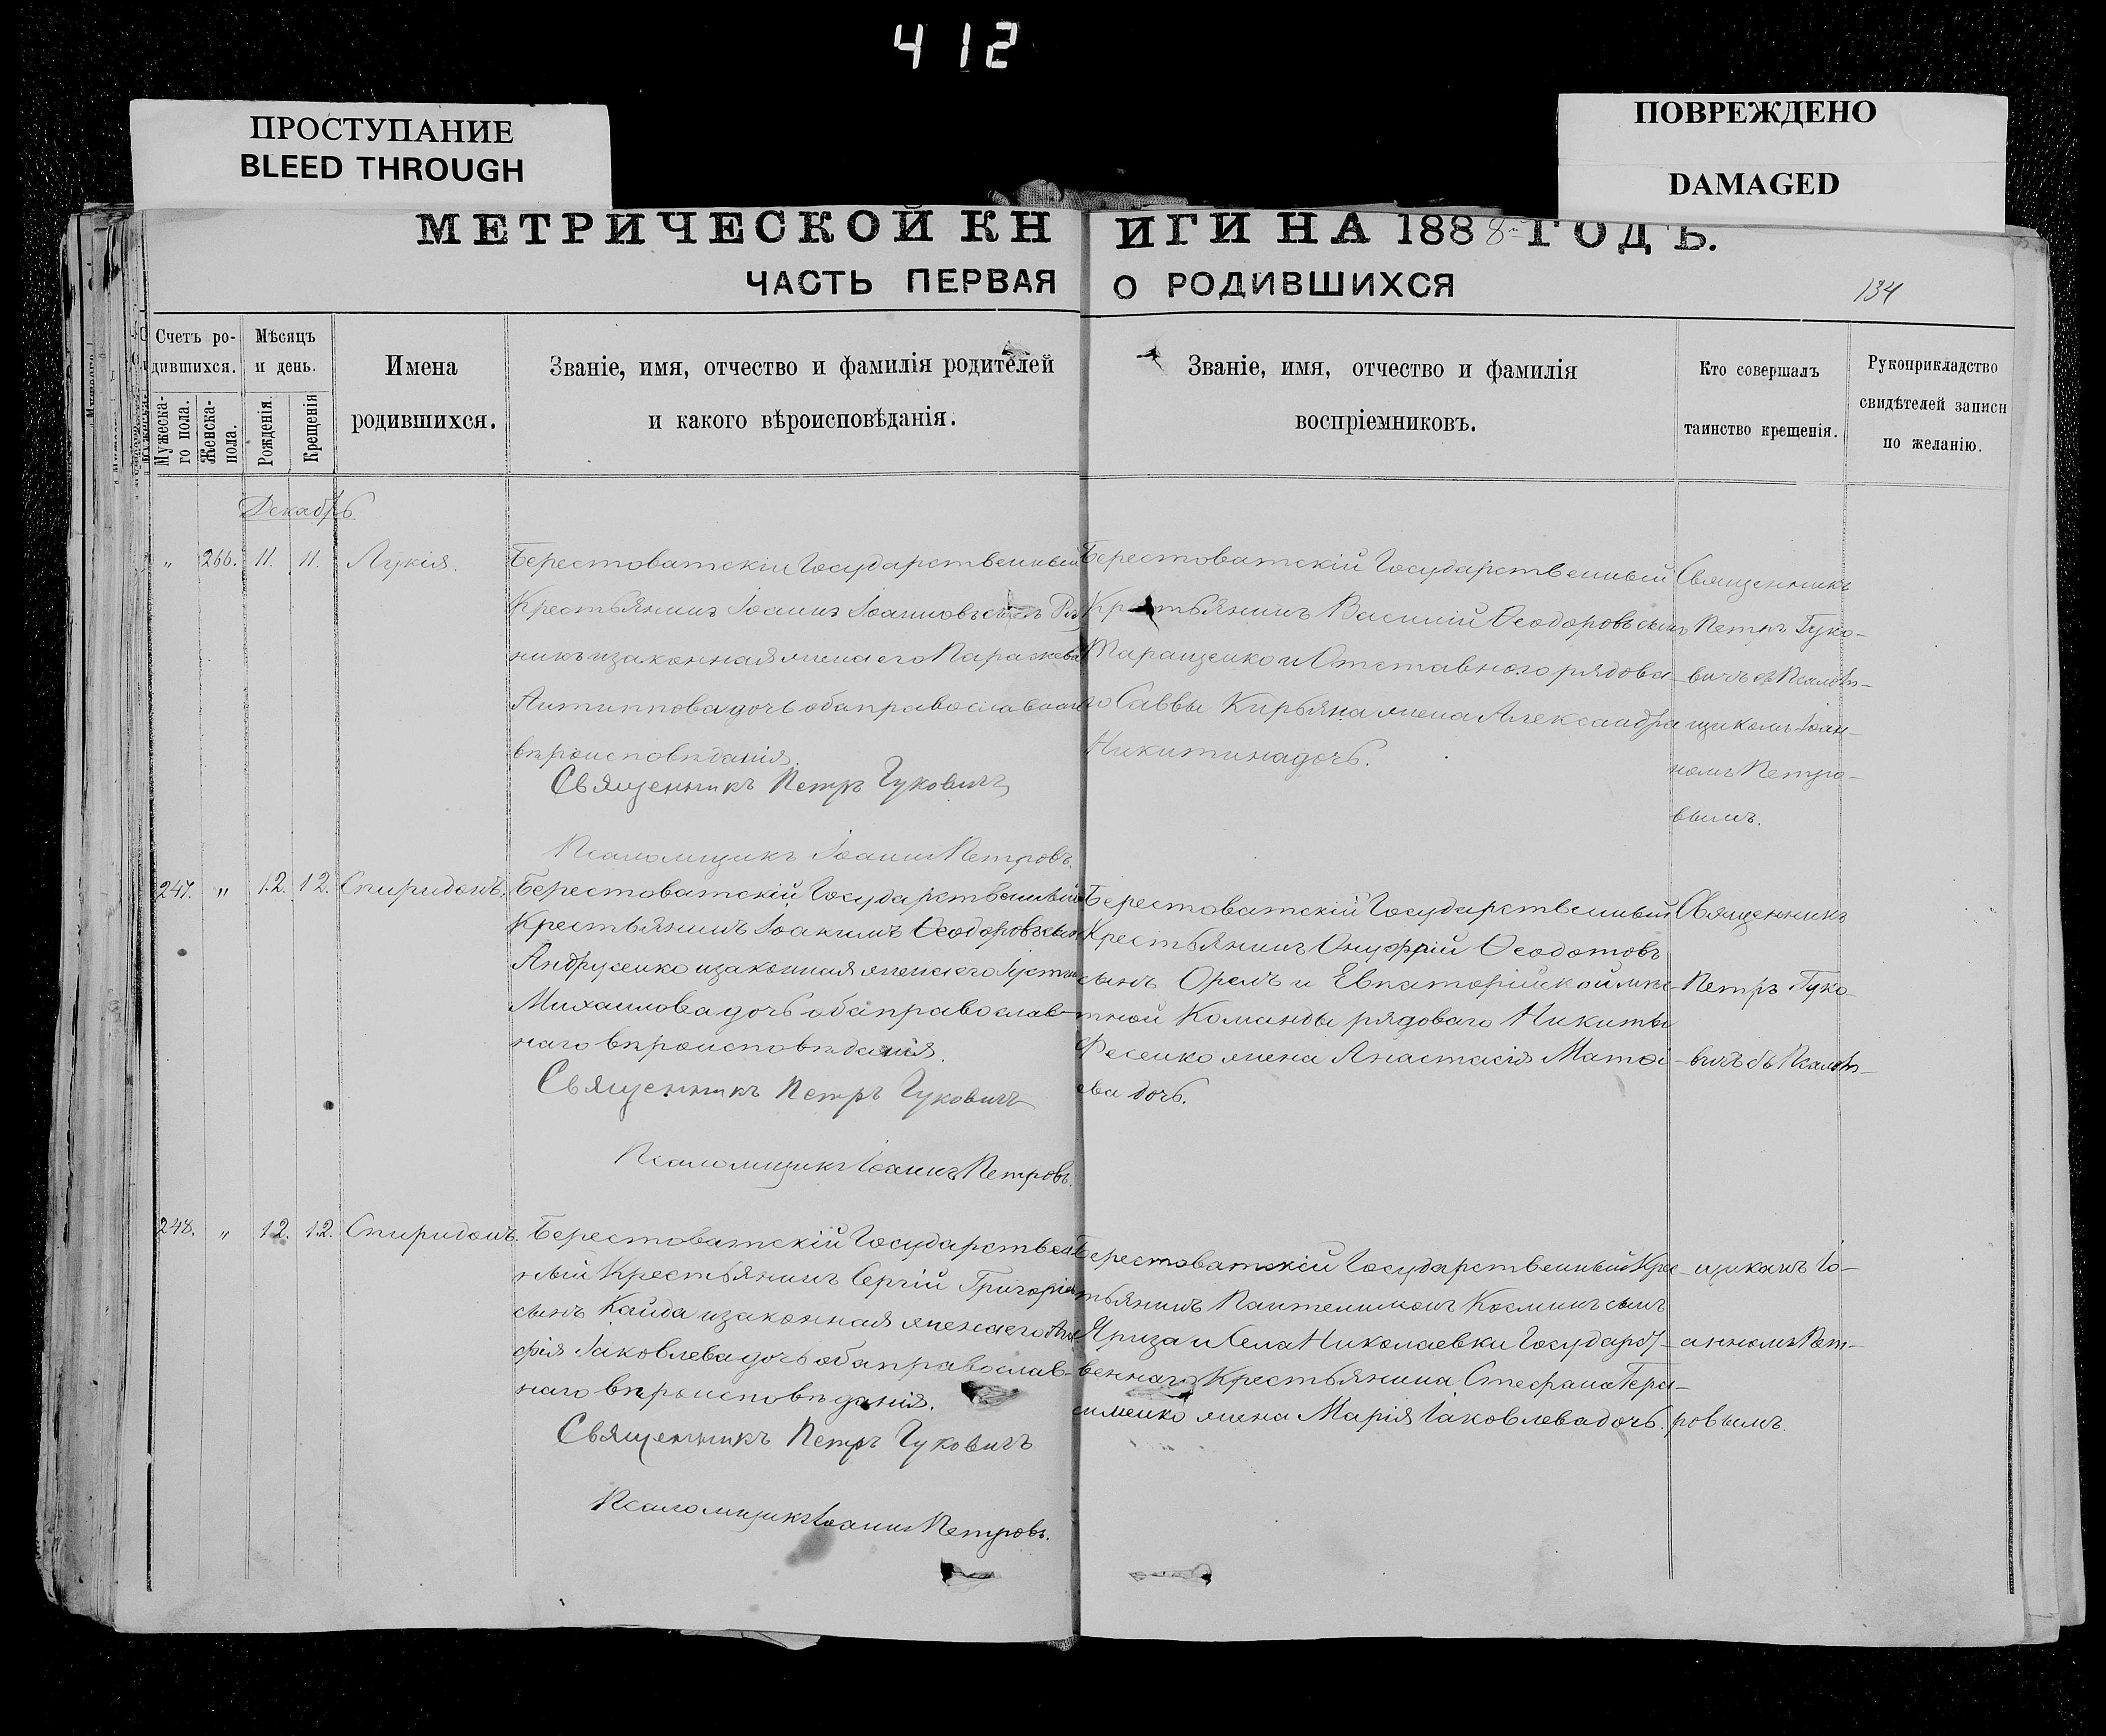 412
ПРОСТУПАНИЕ
BLEED THROUGH
ПОВРЕЖДЕНО
DAMAGED
МЕТРИЧЕСКОЙ КНИГИ НА 1888 ГОДЪ.
ЧАСТЬ ПЕРВАЯ О РОДИВШИХСЯ
134
Счетъ ро-
дившихся.
Мужеска-
го пола.
Женска-
пола.
Мѣсяцъ
и день.
Рожденія.
Крещенія
Имена
родившихся.
Званіе, имя, отчество и фамилія родителей
и какого вѣроисповѣданія.
Званіе, имя, отчество и фамилія
воспріемниковъ.
Кто совершалъ
таинство крещенія.
Рукоприкладство
свидѣтелей записи
по желанію.
Декабрь
" 266. 11. 11. Лукія.
Берестоватскій Государственный
Крестьянинъ Іоаннъ Іоанновъ сынъ
никъ и законная жена его Параскева
Антиппова дочь оба православнаго
вѣроисповѣданія.
Священникъ Петръ Гуковичъ
Псаломщикъ Іоаннъ Петровъ.
Берестоватскій Государственный
Крестьянинъ Василій Ѳеодоровъ сынъ
Таращенко и Отставного рядова
го Саввы Кирьяна жена Александра
Никитина дочь.
Священникъ
Петръ Гуко-
вичъ съ Псалом-
щикомъ Іоан-
номъ Петро-
вымъ.
247. " 12. 12. Спиридонъ.
Берестоватскій Государственный
Крестьянинъ Іоакимъ Ѳеодоровъ сынъ
Андрусенко и законная жена его Іустина
Михаилова дочь оба православ-
наго вѣроисповѣданія.
Священникъ Петръ Гуковичъ
Псаломщикъ Іоаннъ Петровъ.
Берестоватскій Государственный
Крестьянинъ Онуфрій Ѳеодотовъ
сынъ Орелъ и Евпаторійской мѣс-
тной Команды рядоваго Никиты
Фесенко жена Анастасія Матѳі-
ева дочь.
Священникъ
Петръ Гуко-
вичъ съ Псалом-
248. " 12. 12. Спиридонъ.
Берестоватскій Государствен
ный Крестьянинъ Сергій Григоріевъ
сынъ Кайда и законная жена его
фія Іаковлева дочь оба православ-
наго вѣроисповѣданія.
Священникъ Петръ Гуковичъ
Псаломщикъ Іоаннъ Петровъ.
Берестоватскій Государственный Крес
тьянинъ Пантелимонъ Косминъ сынъ
и Села Николаевки Государст-
веннаго Крестьянина Стефана Гера-
сименко жена Марія Іаковлева дочь.
щикомъ Іо-
анномъ Пет-
ровымъ.